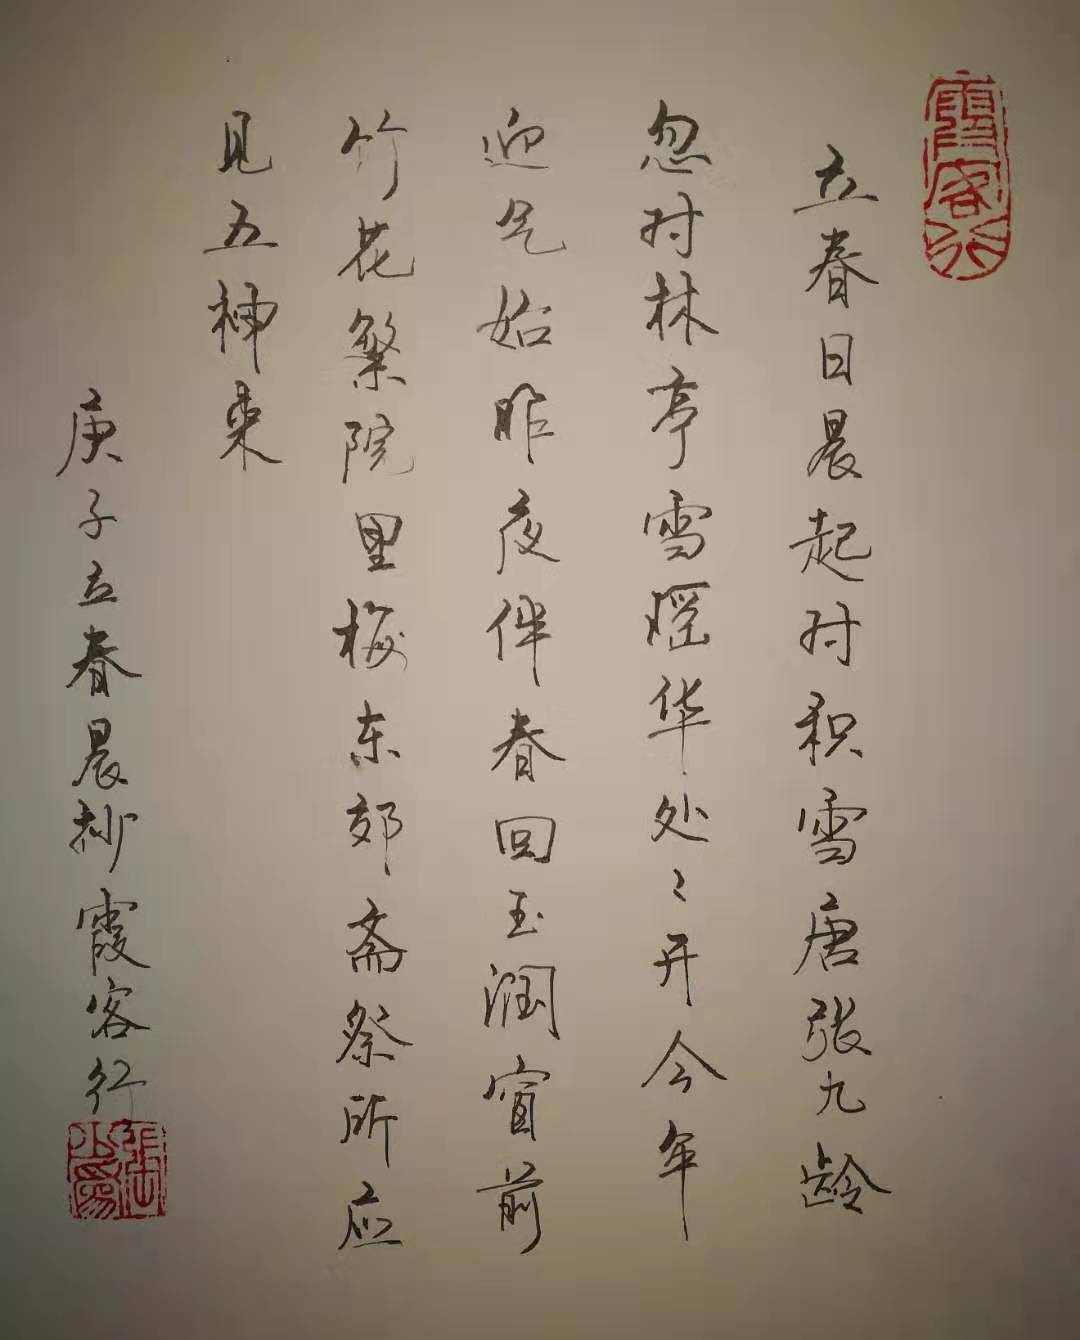 霞客行
立春日晨起对积雪唐张九龄
忽对林亭雪瑶华处〻开今年
迎气始昨夜伴春回玉润窗前
竹花繁院里梅东郊斋祭所应
见五神来
庚子立春晨抄霞客行